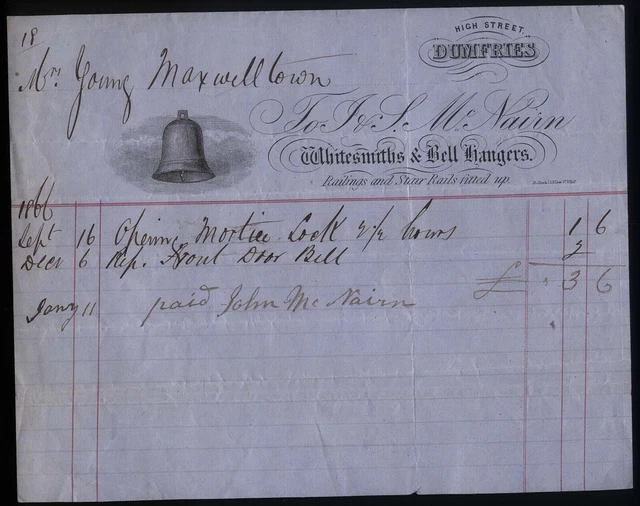 18
HIGH STREET
DUMFRIES
Mr Young Maxwelltown
To J & S. Mc Nairn
Whitesmiths & Bell Hangers.
Railings and Stair Rails fitted up.
1866
Sept 16 Opening Mortice Lock 2 1/2 hours 1 6
Decr 6 Rep. Front Door Bell 2
£ " 3 6
Jany 11 paid John Mc Nairn